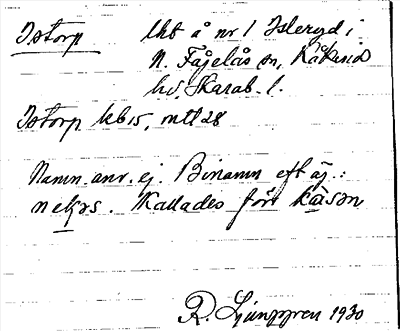 Istorp lht å nr 1 Isleryd i
N. Fågelås sn, Kåkind
hd, Skarab. l.
Istorp kb 15, mtl 28
Namn. anv. ej. Binamn eft äg.:
Kallades förr
R. Ljunggren 1930